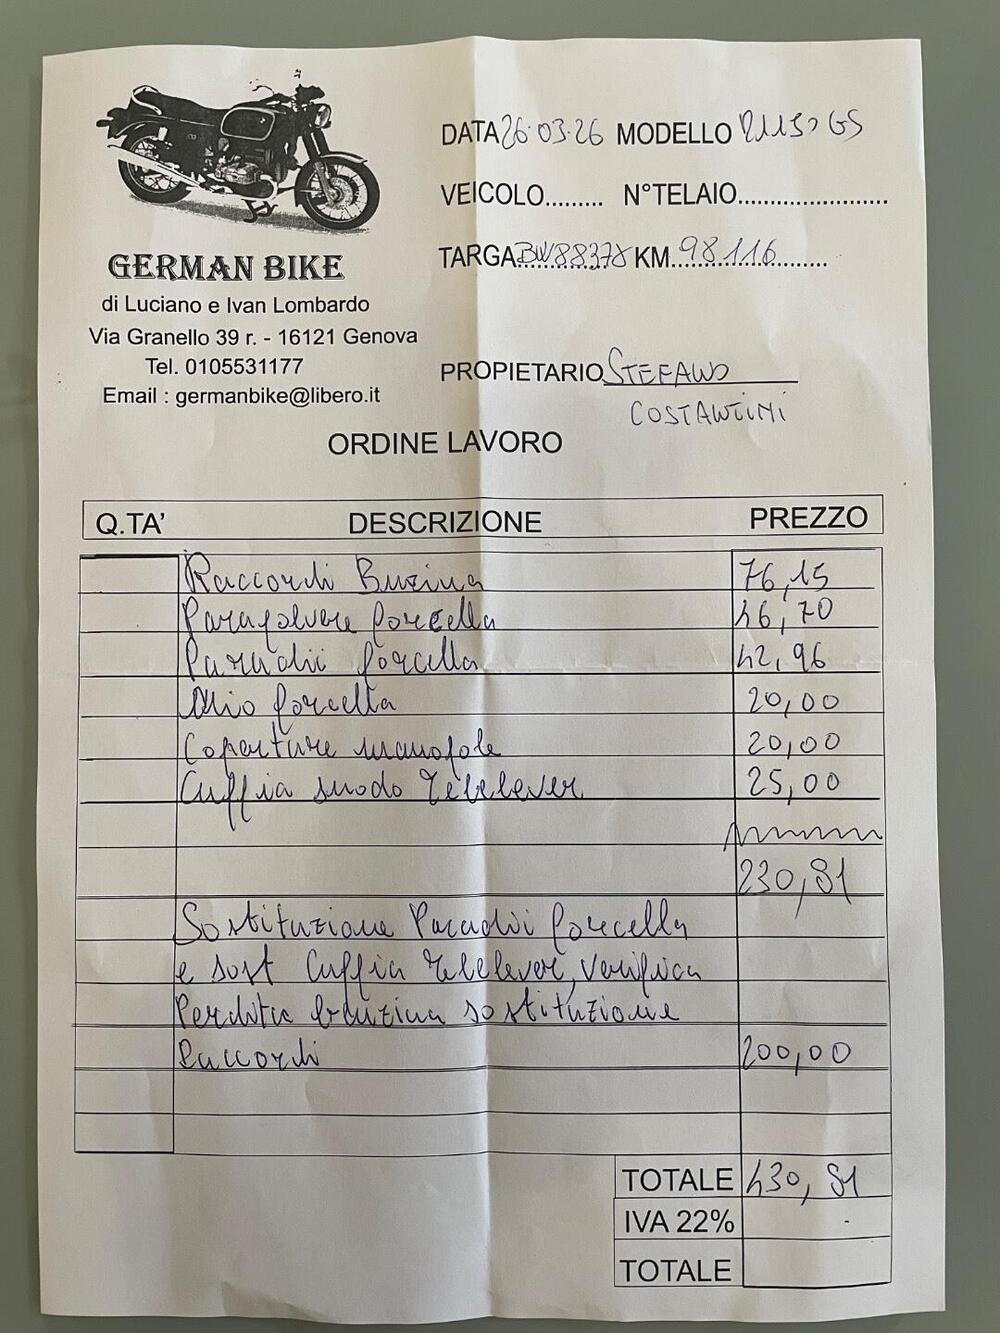 DATA 26.03.26 MODELLO R1150 GS
VEICOLO......... N°TELAIO.......................
TARGA BW88378 KM 98116
GERMAN BIKE
di Luciano e Ivan Lombardo
Via Granello 39 r. - 16121 Genova
Tel. 0105531177
Email : germanbike@libero.it
PROPIETARIO STEFANO
COSTANTINI
ORDINE LAVORO
Q.TA' DESCRIZIONE PREZZO
Raccordi Buzina 76,15
Parapolvere forcella 46,70
Paradii forcella 42,96
Olio forcella 20,00
Coperture manopole 20,00
Cuffia snodo Telelever 25,00
230,81
Sostituzione Paradoi forcella
e sost Cuffia Telelever, verifica
Perdita benzina sostituzione
Raccordi 200,00
TOTALE 430,81
IVA 22% -
TOTALE